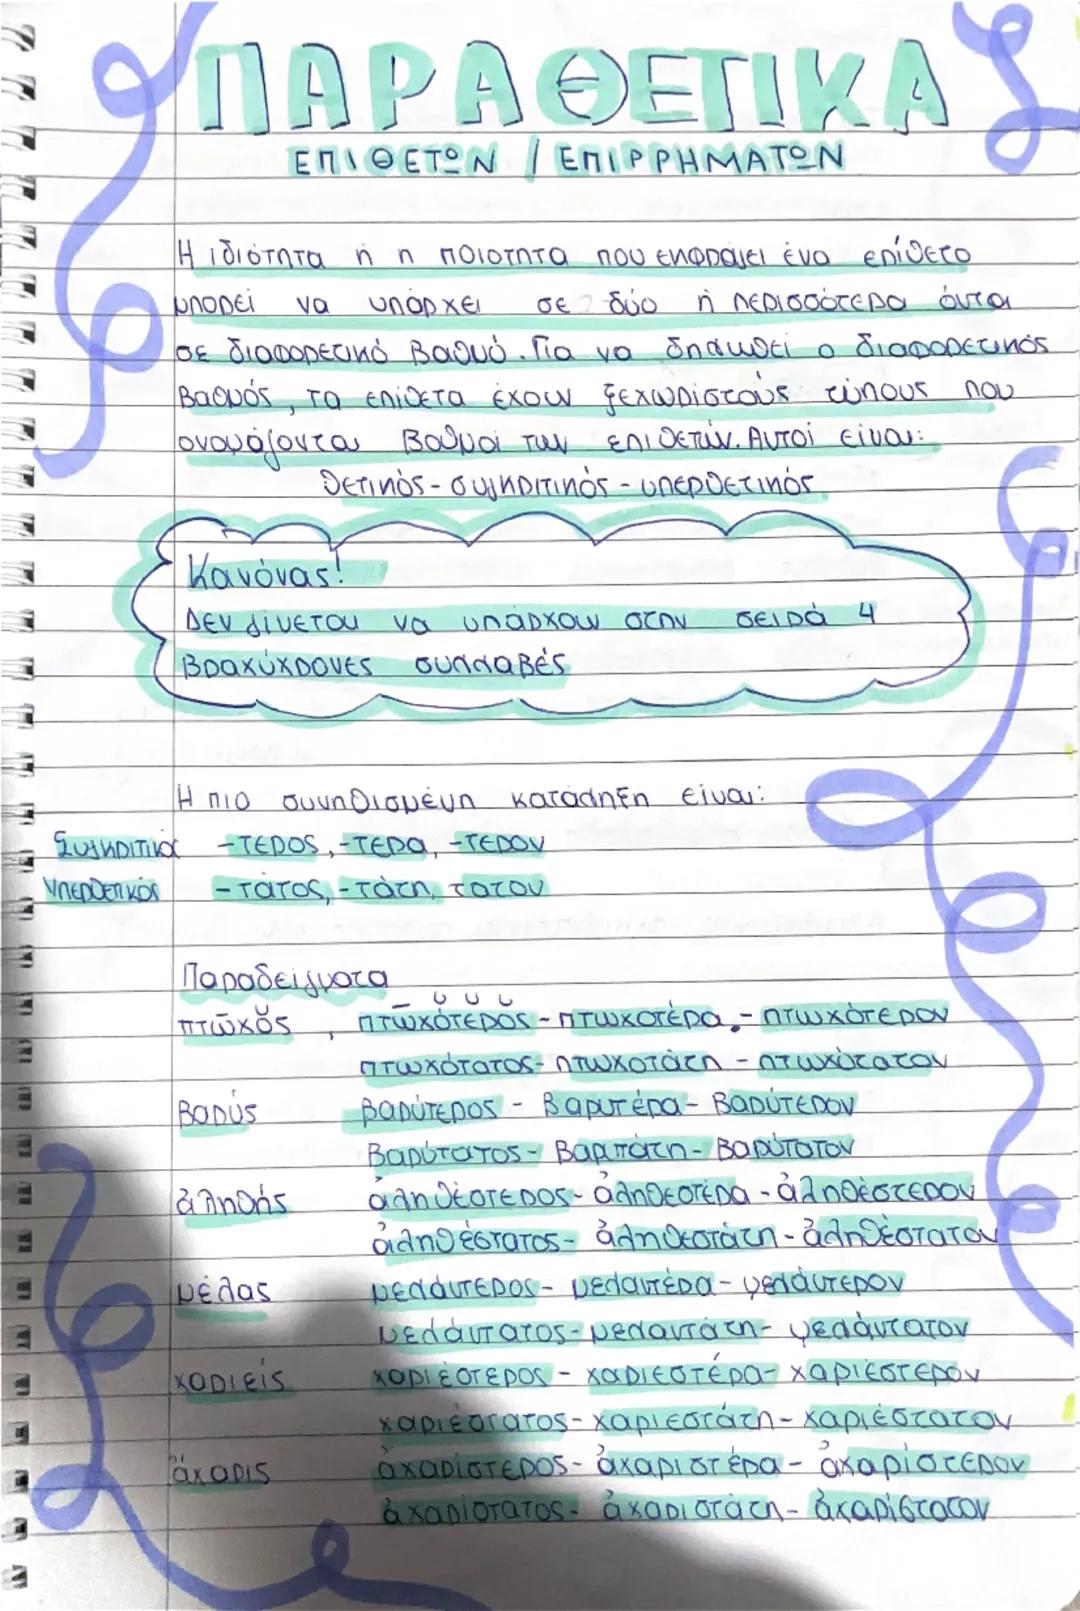 ΠΑΡΑΘΕΤΙΚΑ
ΕΠΙΘΕΤΩΝ / ΕΠΙΡΡΗΜΑΤΩΝ
Η ιδιότητα ή η ποιότητα που εκφράζει ένα επίθετο
μπορεί να υπάρχει σε δύο ή περισσότερα όντα
σε διαφορετικό βαθμό. Για να δηλωθεί ο διαφορετικός
βαθμός, τα επίθετα έχουν ξεχωριστούς τύπους που
ονομάζονται βαθμοί των επιθέτων. Αυτοί είναι:
θετικός - συγκριτικός - υπερθετικός
Κανόνας!
Δεν γίνεται να υπάρχουν στην σειρά 4
βραχύχρονες συλλαβές
Η πιο συνηθισμένη κατάληξη είναι:
Συγκριτικά -τερος, -τερα, -τερον
Υπερθετικός -τατος, -τάτη, τατον
Παραδείγματα
πτωχός , πτωχότερος - πτωχοτέρα - πτωχότερον
πτωχότατος - πτωχοτάτη - πτωχότατον
βαρύς βαρύτερος - βαρυτέρα - βαρύτερον
βαρύτατος - βαρυτάτη - βαρύτατον
ἀληθής ἀληθέστερος - ἀληθεστέρα - ἀληθέστερον
ἀληθέστατος - ἀληθεστάτη - ἀληθέστατον
μέλας μελάντερος - μελαντέρα - μελάντερον
μελάντατος - μελαντάτη - μελάντατον
χαριείς χαριέστερος - χαριεστέρα - χαριέστερον
χαριέστατος - χαριεστάτη - χαριέστατον
ἄχαρις ἀχαρίστερος - ἀχαριστέρα - ἀχαρίστερον
ἀχαρίστατος - ἀχαριστάτη - ἀχαρίστατον